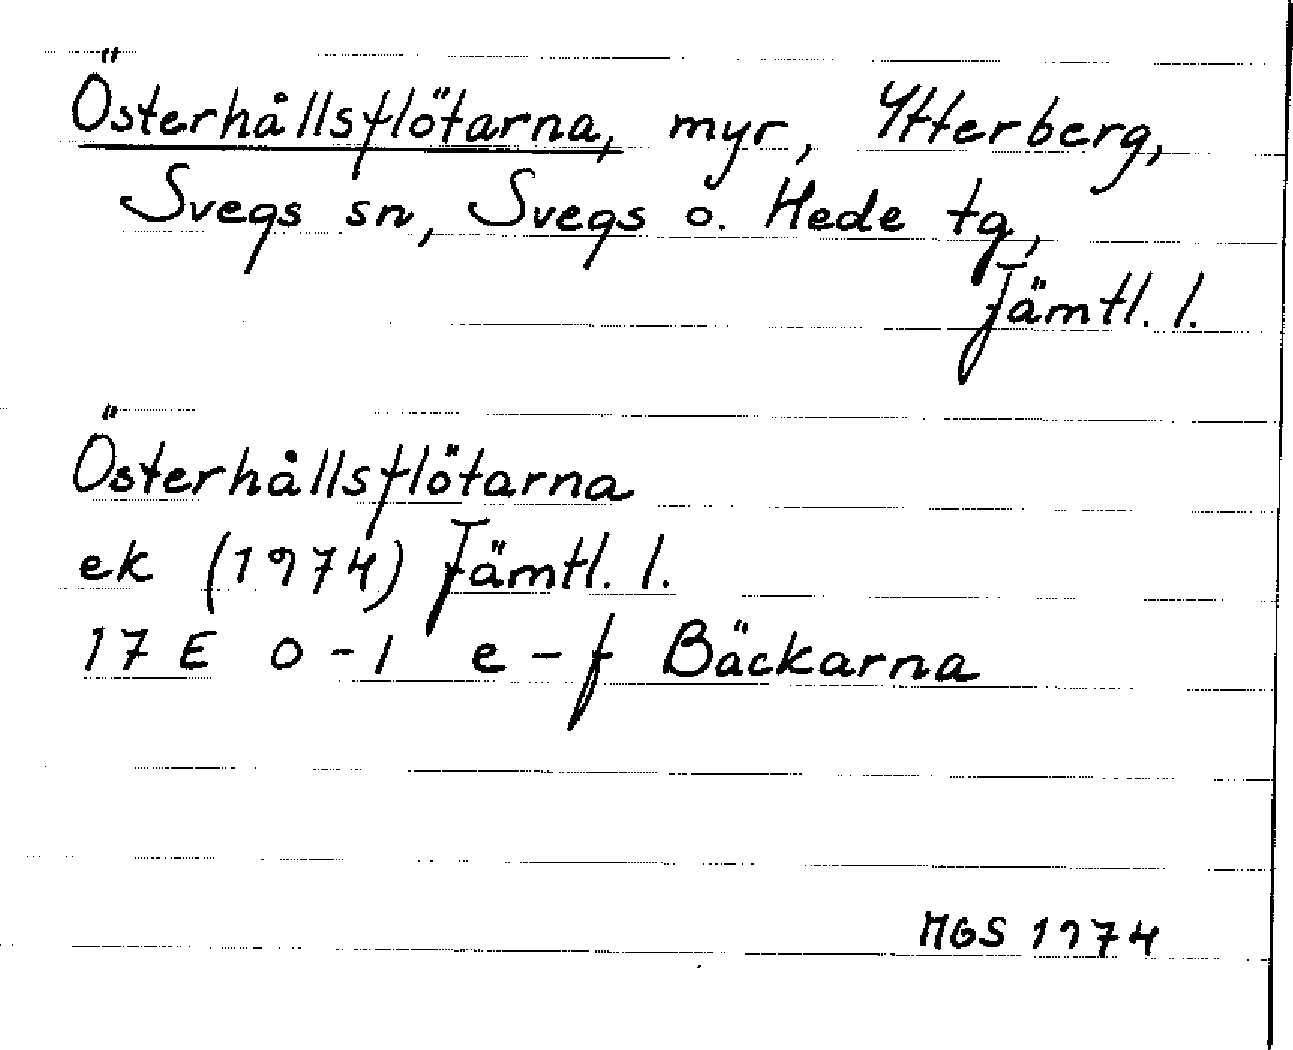 Österhållsflötarna, myr, Ytterberg,
Svegs sn, Svegs o. Hede tg,
Jämtl. l.
Österhållsflötarna
ek (1974) Jämtl. l.
17 E 0-1 e-f Bäckarna
MGS 1974